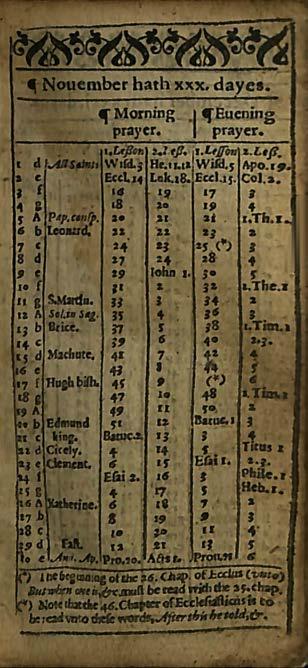 ¶ Nouember hath xxx. dayes.
¶ Morning prayer. ¶ Euening prayer.
1. Lesson 2. Less. 1. Lesson 2. Less.
1 d All Saints Wisd. 3 He. 11.12 Wisd. 5 Apo. 19.
2 e Eccl. 14 Luk. 18. Eccl. 15. Col. 2.
3 f 16 19 17 3
4 g 18 20 19 4
5 A Pap. consp. 20 21 21 1. Th. 1.
6 b Leonard. 22 22 23 2
7 c 24 23 25 (*) 3
8 d 27 24 28 4
9 e 29 Iohn 1. 30 5
10 f 31 2 32 2. The. 1
11 g S. Martin. 33 3 34 2
12 A Sol. in Sag. 35 4 36 3
13 b Brice. 37 5 38 1. Tim. 1
14 c 39 6 40 2.3.
15 d Machute. 41 7 42 4
16 e 43 8 44 5
17 f Hugh bish. 45 9 (*) 6
18 g 47 10 48 2. Tim. 1
19 A 49 11 50 2
20 b Edmund 51 12 Baruc. 1 3
21 c king. Baruc. 2. 13 3 4
22 d Cicely. 4 14 5 Titus 1
23 e Clement. 6 15 Esai 1. 2.3.
24 f Esai 2. 16 3 Phile. 1
25 g 4 17 5 Heb. 1.
26 A Katherine. 6 18 7 2
27 b 8 19 9 3
28 c 10 20 11 4
29 d Fast. 12 21 13 5
30 e And. Ap. Pro. 20. Acts 1. Prou. 21 6
(*) The beginning of the 26. Chap. of Ecclus (vnto)
But when one is, &c must be read with the 25. chap.
(*) Note that the 46. Chapter of Ecclesiasticus is to
be read vnto these words, After this he told, &c.